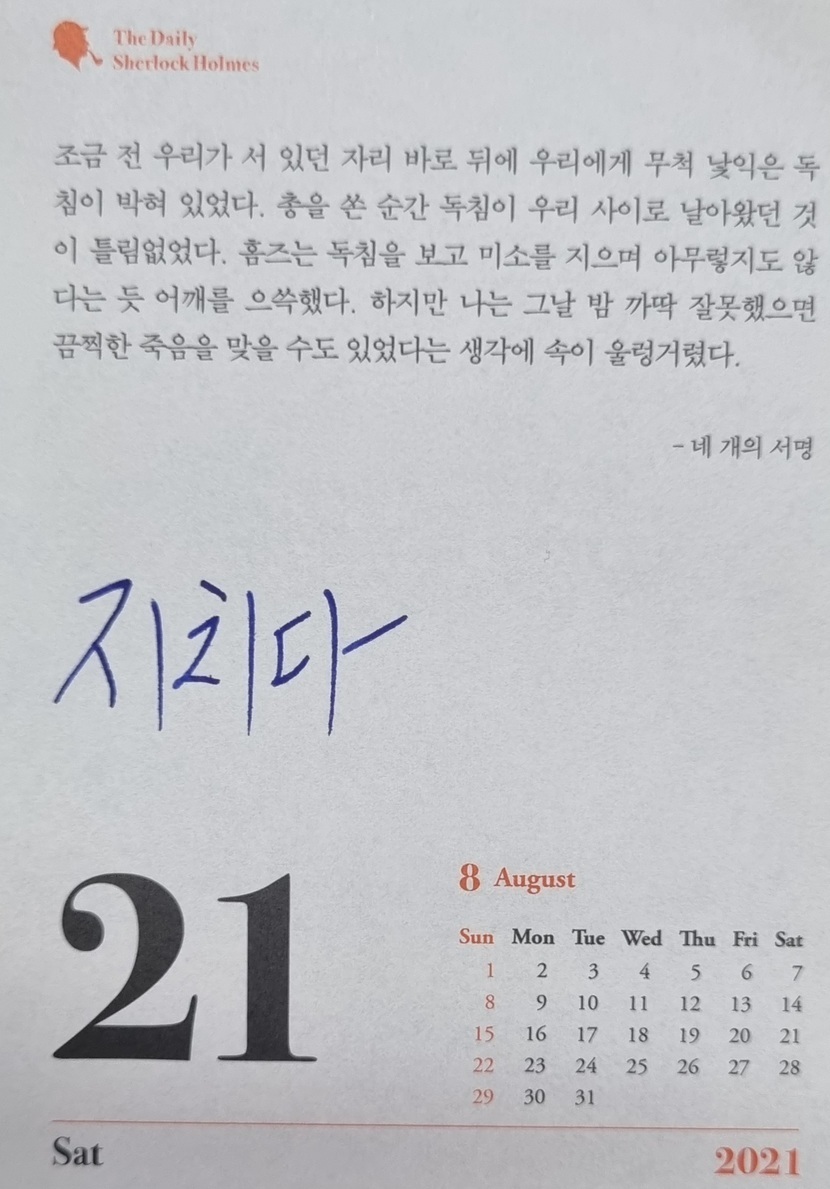 The Daily
Sherlock Holmes
조금 전 우리가 서 있던 자리 바로 뒤에 우리에게 무척 낯익은 독
침이 박혀 있었다. 총을 쏜 순간 독침이 우리 사이로 날아왔던 것
이 틀림없었다. 홈즈는 독침을 보고 미소를 지으며 아무렇지도 않
다는 듯 어깨를 으쓱했다. 하지만 나는 그날 밤 까딱 잘못했으면
끔찍한 죽음을 맞을 수도 있었다는 생각에 속이 울렁거렸다.
- 네 개의 서명
지치다
21
8 August
Sun Mon Tue Wed Thu Fri Sat
1 2 3 4 5 6 7
8 9 10 11 12 13 14
15 16 17 18 19 20 21
22 23 24 25 26 27 28
29 30 31
Sat
2021